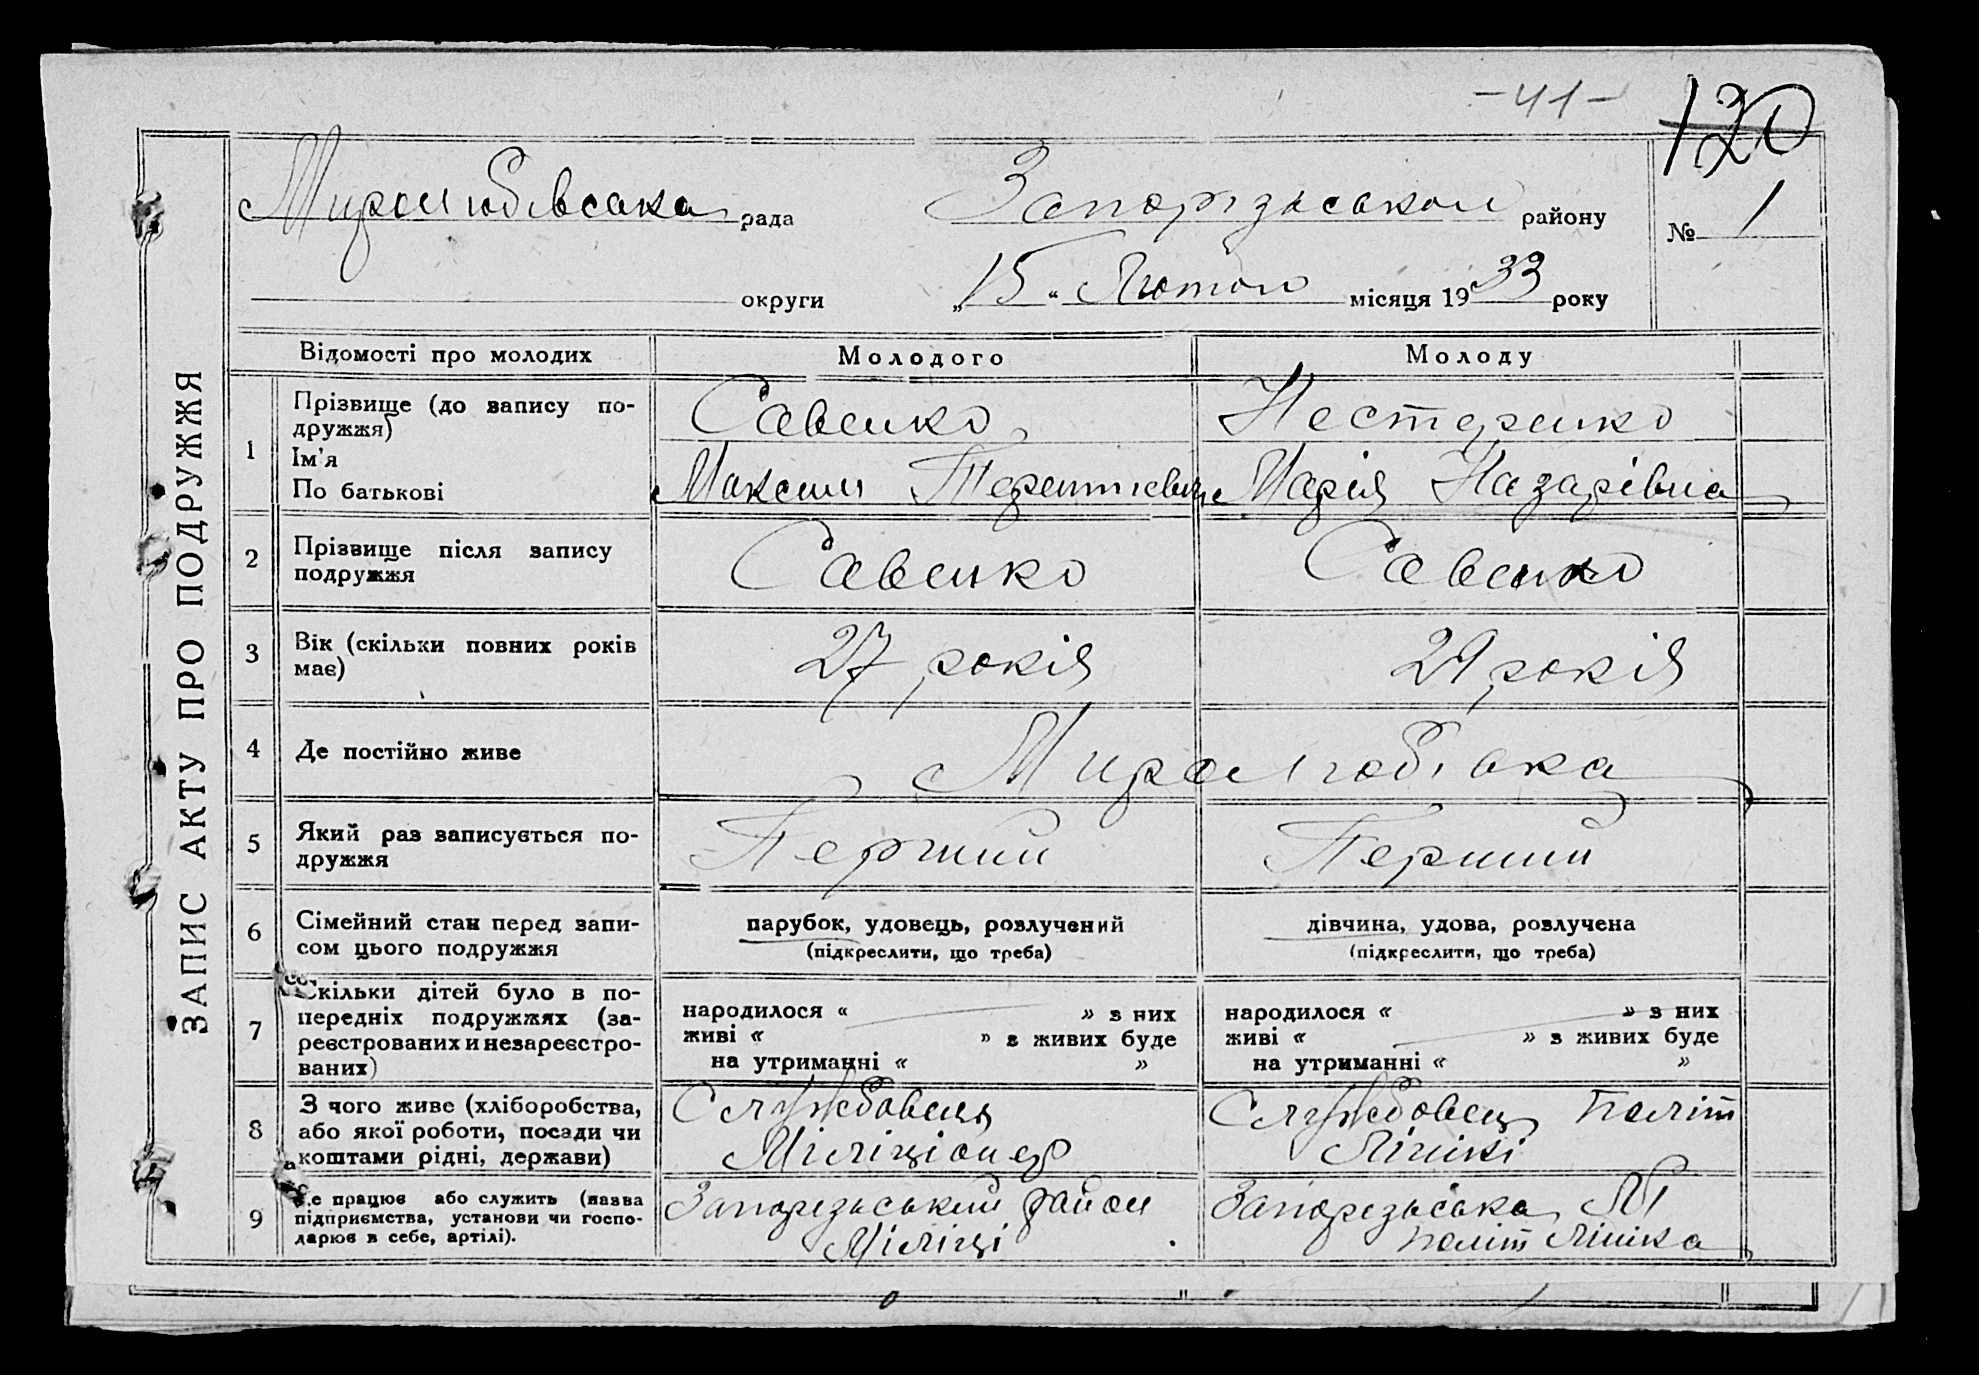 -41-
120
Миролюбівська рада Запорізького району № 1
округи „15" Лютого місяця 1933 року
ЗАПИС АКТУ ПРО ПОДРУЖЖЯ
Відомості про молодих Молодого Молоду
1 Прізвище (до запису по-
дружжя) Савенко Нестеренко
Ім'я
По батькові Максим Терентієвич Марія Назарівна
2 Прізвище після запису
подружжя Савенко Савенко
3 Вік (скільки повних років
має) 27 років 21 років
4 Де постійно живе Миролюбівка
5 Який раз записується по-
дружжя Перший Перший
6 Сімейний стан перед запи-
сом цього подружжя
парубок, удовець, розлучений
(підкреслити, що треба)
дівчина, удова, розлучена
(підкреслити, що треба)
7 Скільки дітей було в по-
передніх подружжях (за-
реєстрованих и незареєстро-
ваних)
народилося « » з них
живі « » з живих буде
на утриманні « »
народилося « » з них
живі « » з живих буде
на утриманні « »
8 З чого живе (хліборобства,
або якої роботи, посади чи
коштами рідні, держави)
Службовець
Міліціонер
Службовець
9 Де працює або служить (назва
підприємства, установи чи госпо-
дарює в себе, артілі).
Запорізький район
Міліці
Запорізька